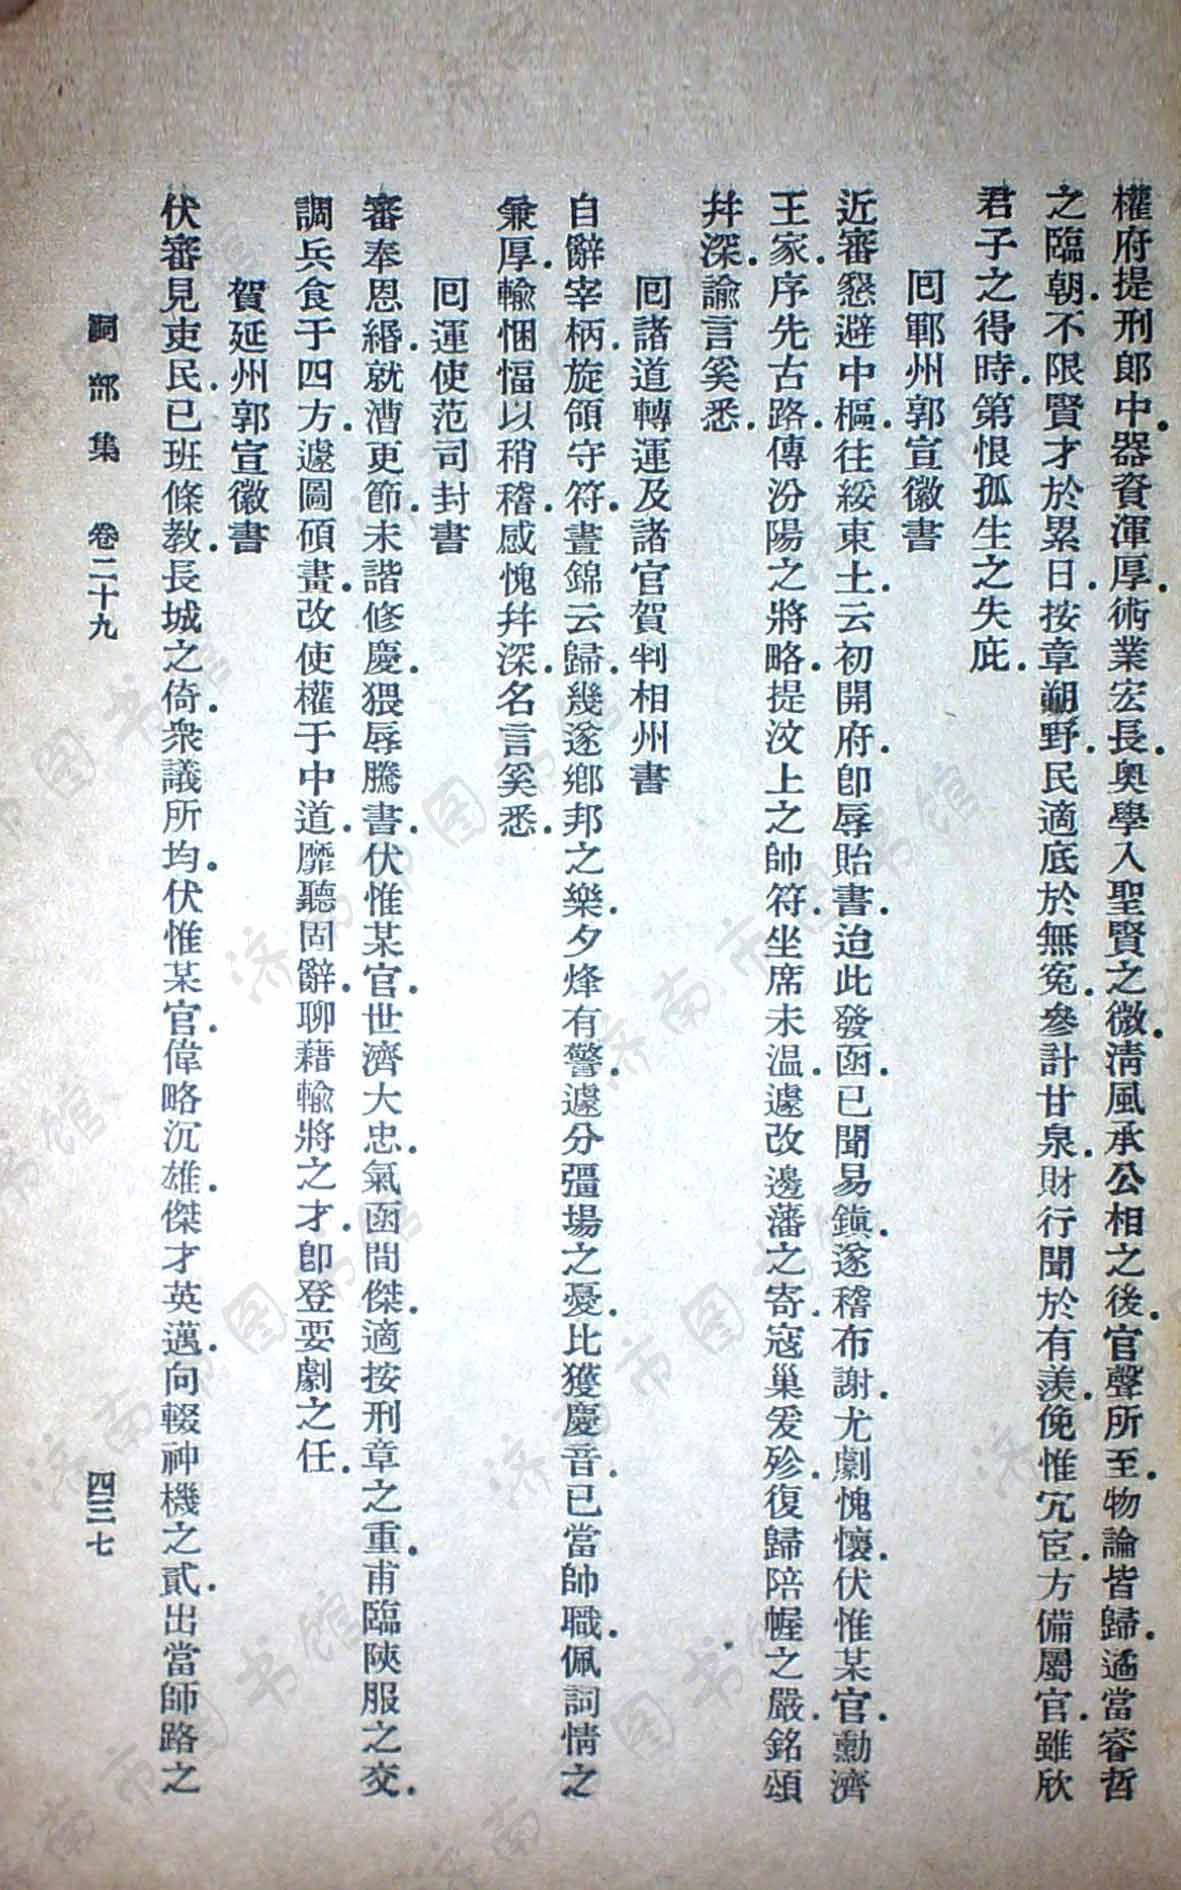 權府提刑郎中.器資渾厚.術業宏長.奧學入聖賢之微.清風承公相之後.官聲所至.物論皆歸.遹當睿哲
之臨朝.不限賢才於累日.按章朔野.民適底於無冤.參計甘泉.財行聞於有羨.俛惟宂宦.方備屬官.雖欣
君子之得時.第恨孤生之失庇.
回鄆州郭宣徽書
近審懇避中樞.往綏東土.云初開府.卽辱貽書.迨此發函.已聞易鎭.遂稽布謝.尤劇愧懷.伏惟某官.勳濟
王家.序先古路.傳汾陽之將略.提汶上之帥符.坐席未温.遽改邊藩之寄.寇巢爰殄.復歸陪幄之嚴.銘頌
幷深.諭言奚悉.
回諸道轉運及諸官賀判相州書
自辭宰柄.旋領守符.晝錦云歸.幾遂鄉邦之樂.夕烽有警.遽分彊場之憂.比獲慶音.已當帥職.佩詞情之
兼厚.輸悃愊以稍稽.感愧幷深.名言奚悉.
回運使范司封書
審奉恩緡.就漕更節.未諧修慶.猥辱騰書.伏惟某官.世濟大忠.氣函間傑.適按刑章之重.甫臨陝服之交.
調兵食于四方.遽圖碩畫.改使權于中道.靡聽固辭.聊藉輸將之才.卽登要劇之任.
賀延州郭宣徽書
伏審見吏民.已班條教.長城之倚.衆議所均.伏惟某官.偉略沉雄.傑才英邁.向輟神機之貳.出當師路之
詞部集 卷二十九 四三七
济南市图书馆